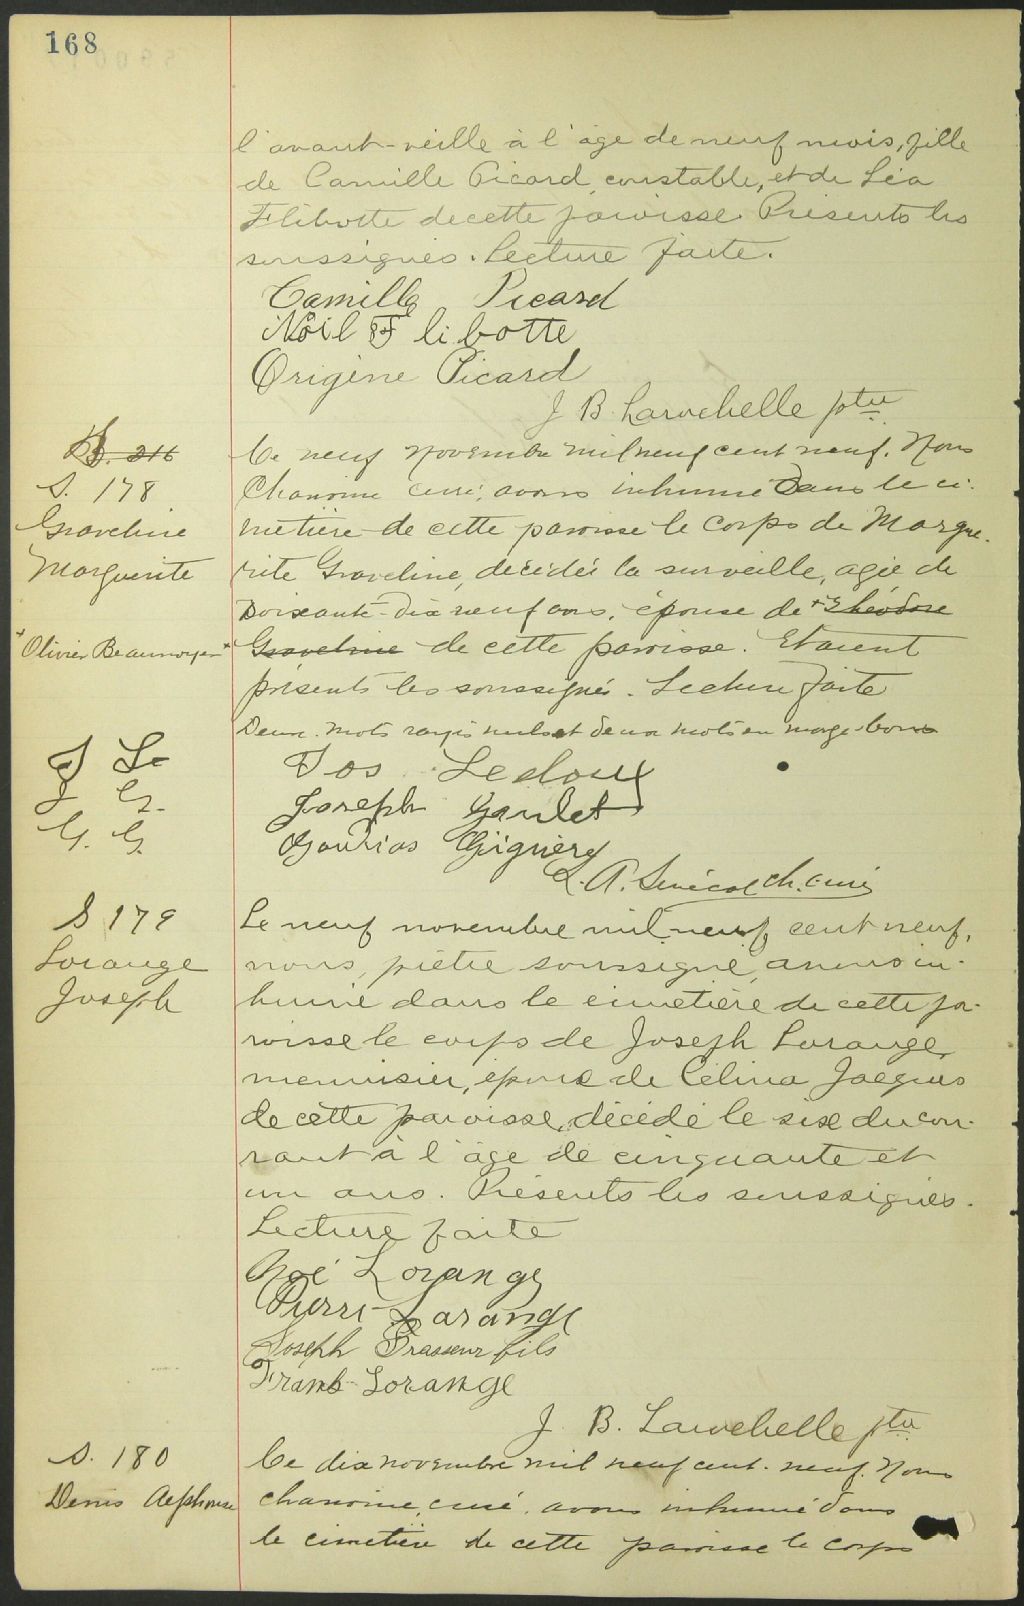 168
l'avant-veille à l'âge de neuf mois, fille
de Camille Picard, constable, et de Léa
Flibotte de cette paroisse. Présents les
soussignés. Lecture faite.
Camille Picard
Noil Flibotte
Origène Picard
J B. Larochelle ptre
B. 216
S. 178
Graveline
Marguerite
+ Olivier Beaunoyer +
Ce neuf novembre mil neuf cent neuf. Nous
Chanoine curé, avons inhumé dans le ci-
metière de cette paroisse le corps de Margue-
rite Graveline, décédée la surveille, agée de
soixante-dix neuf ans, épouse de + Théodore
Graveline de cette paroisse. Etaient
présents les soussignés. Lecture faite
Deux mots rayés nuls et deux mots en marge bons
J Le
J G.
G. G.
Jos Ledoux
Joseph Goulet
Gignière
L. A. Sénécal ch. curé
S 179
Lorange
Joseph
Le neuf novembre mil neuf cent neuf,
nous, prêtre soussigné, avons in-
humé dans le cimetière de cette pa-
roisse le corps de Joseph Lorange,
menuisier, époux de Célina Jacques
de cette paroisse, décédé le six du cou-
rant à l'âge de cinquante et
un ans. Présents les soussignés.
Lecture faite
Noé Lorange
Pierre Larange
Joseph Brasseur fils
Frank Lorange
J. B. Larochelle ptre
S. 180
Denis Alphonse
Ce dix novembre mil neuf cent neuf. Nous
chanoine curé, avons inhumé dans
le cimetière de cette paroisse le corps